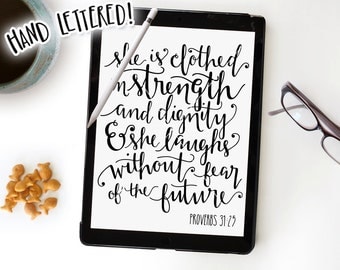 HAND LETTERED!
she is clothed
in strength
and dignity
& she laughs
without fear
of the future
PROVERBS 31:25